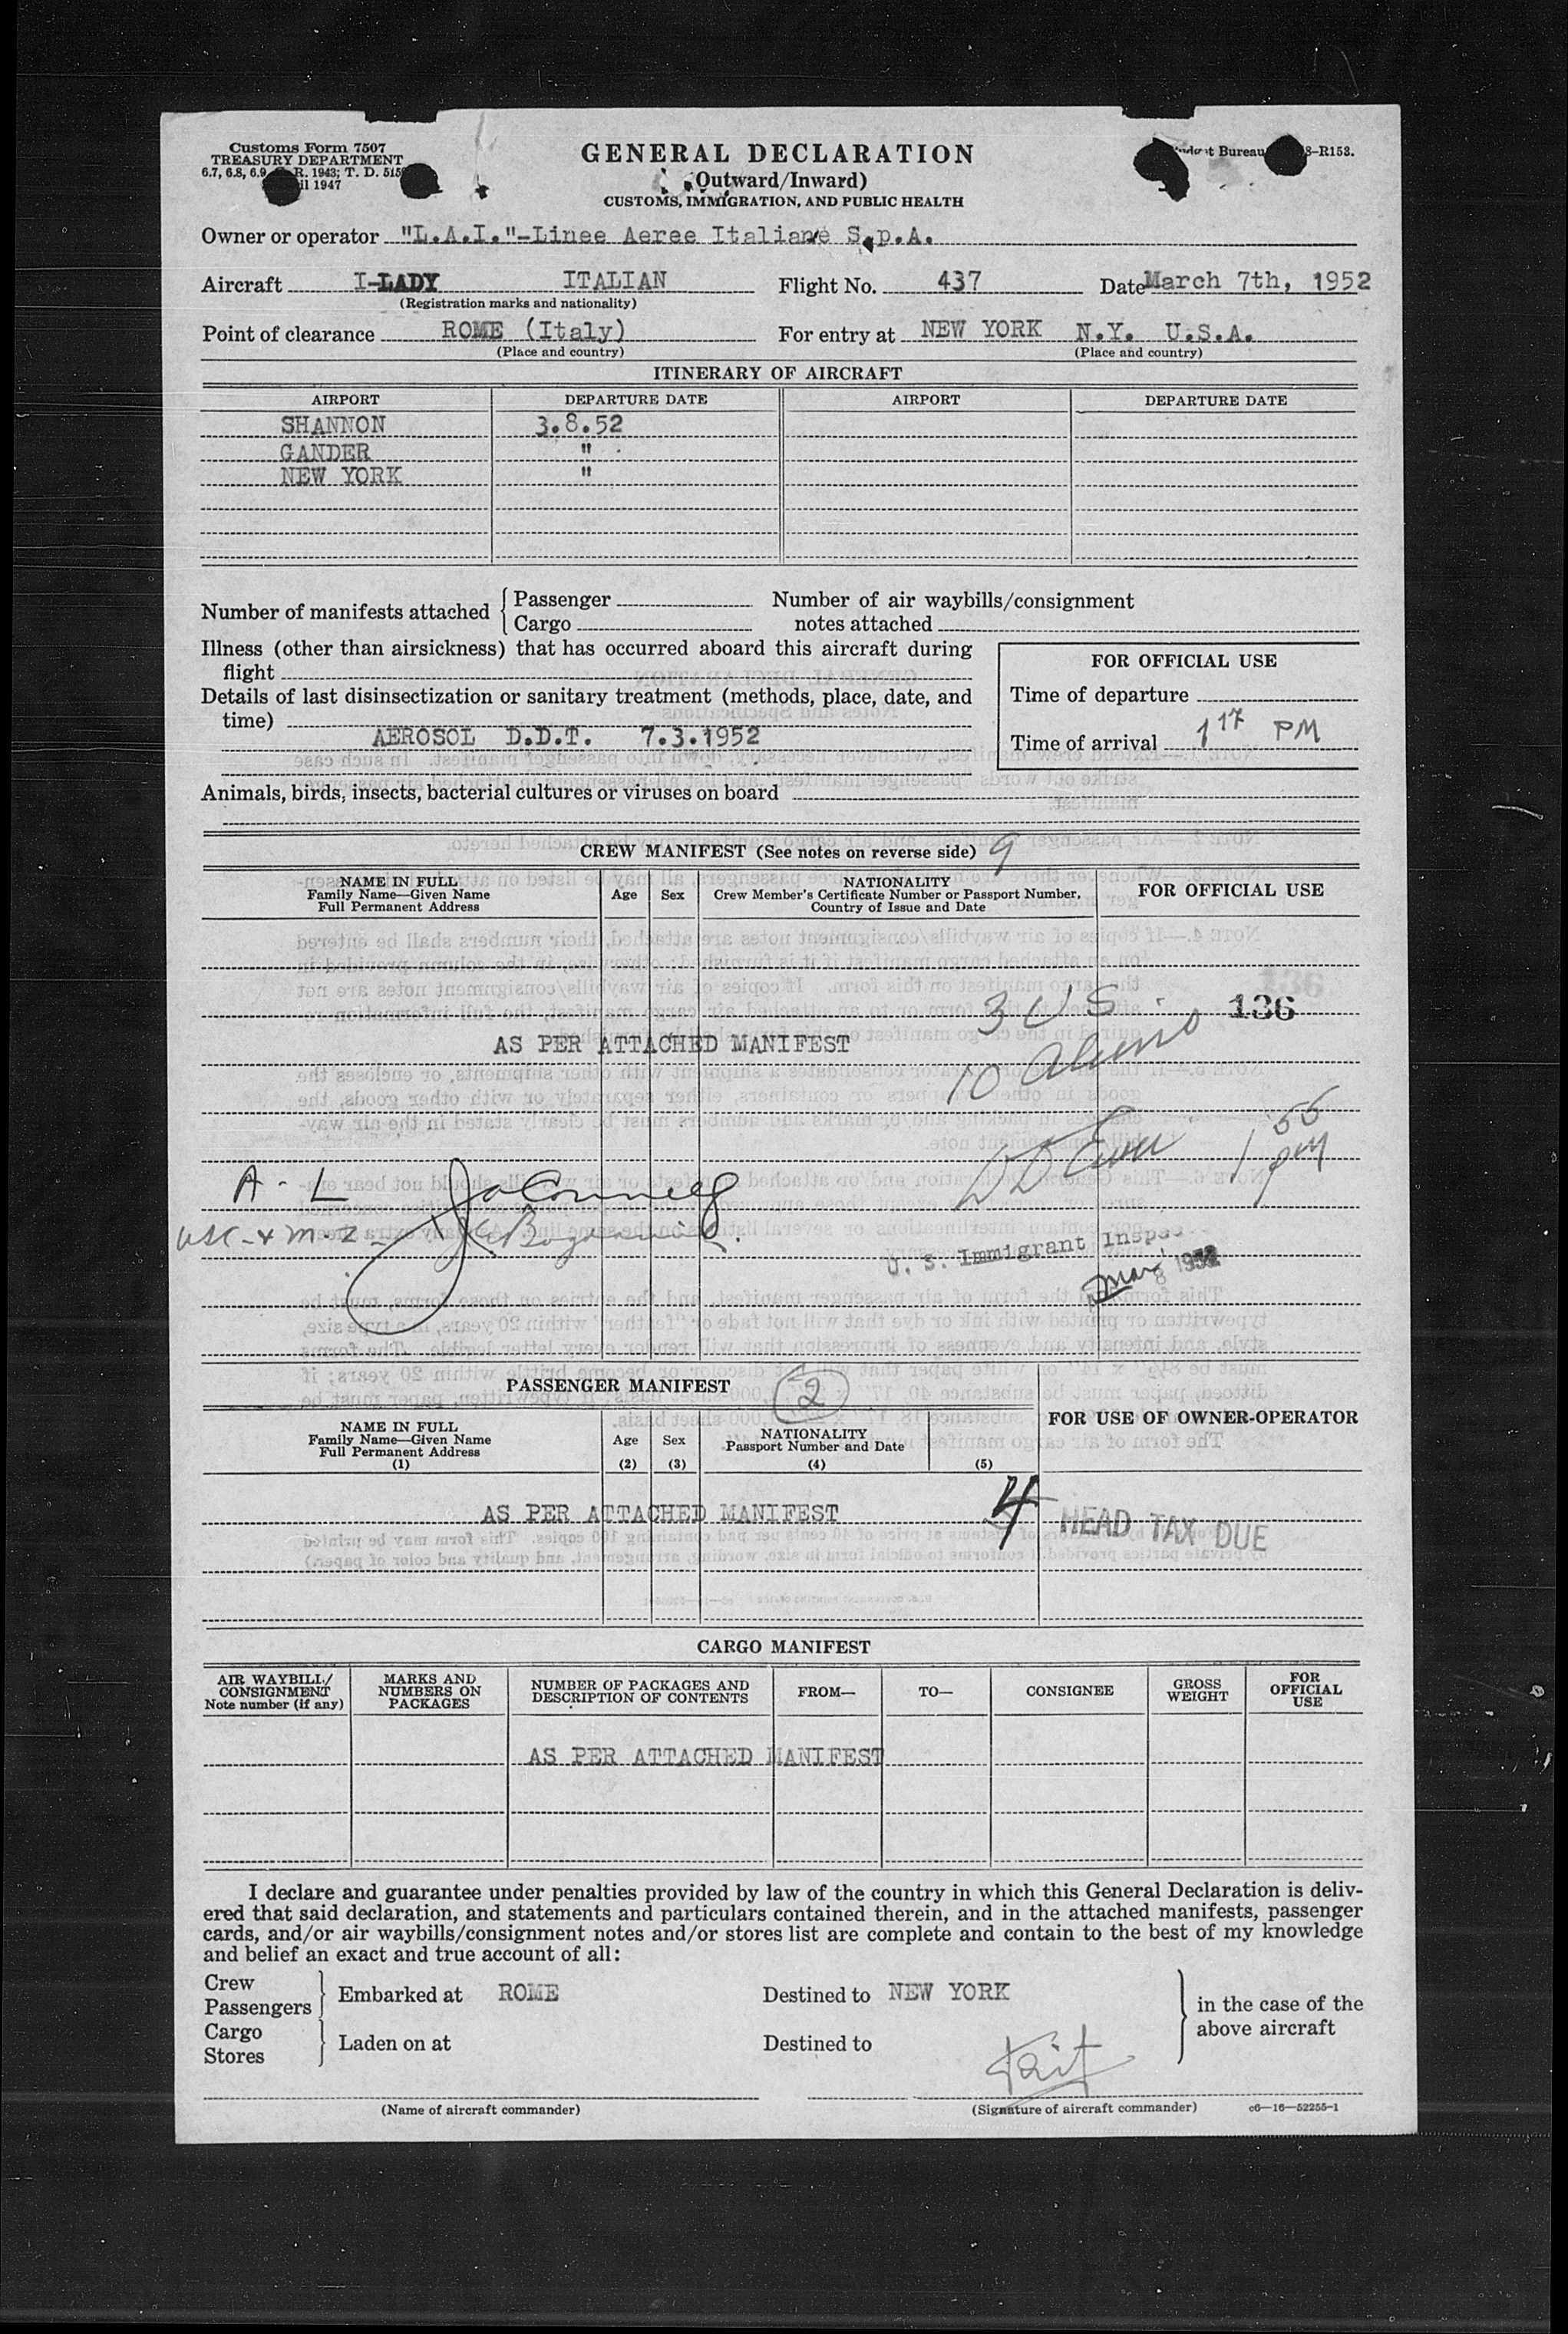 Customs Form 7507
TREASURY DEPARTMENT
6.7, 6.8, 6.9, R. 1943; T. D. 515
1947
GENERAL DECLARATION
(Outward/Inward)
CUSTOMS, IMMIGRATION, AND PUBLIC HEALTH
Bureau -R153.
Owner or operator "L.A.I."-Linee Aeree Italiane S.p.A.
Aircraft I-LADY ITALIAN Flight No. 437 Date March 7th, 1952
(Registration marks and nationality)
Point of clearance ROME (Italy) For entry at NEW YORK N.Y. U.S.A.
(Place and country) (Place and country)
ITINERARY OF AIRCRAFT
AIRPORT DEPARTURE DATE AIRPORT DEPARTURE DATE
SHANNON 3.8.52
GANDER "
NEW YORK "
Number of manifests attached { Passenger Number of air waybills/consignment
Cargo notes attached
Illness (other than airsickness) that has occurred aboard this aircraft during
flight
Details of last disinsectization or sanitary treatment (methods, place, date, and
time)
AEROSOL D.D.T. 7.3.1952
FOR OFFICIAL USE
Time of departure
Time of arrival 1 17 PM
Animals, birds, insects, bacterial cultures or viruses on board
CREW MANIFEST (See notes on reverse side) 9
NAME IN FULL
Family Name—Given Name
Full Permanent Address
Age Sex
NATIONALITY
Crew Member's Certificate Number or Passport Number,
Country of Issue and Date
FOR OFFICIAL USE
3 US. 136
AS PER ATTACHED MANIFEST
10 aliens
1 55 PM
A - L
U. S. Immigrant Inspec
Mar 8 1952
PASSENGER MANIFEST 2
NAME IN FULL
Family Name—Given Name
Full Permanent Address
(1)
Age
(2)
Sex
(3)
NATIONALITY
Passport Number and Date
(4) (5)
FOR USE OF OWNER-OPERATOR
AS PER ATTACHED MANIFEST 4 HEAD TAX DUE
CARGO MANIFEST
AIR WAYBILL/
CONSIGNMENT
Note number (if any)
MARKS AND
NUMBERS ON
PACKAGES
NUMBER OF PACKAGES AND
DESCRIPTION OF CONTENTS
FROM— TO— CONSIGNEE
GROSS
WEIGHT
FOR
OFFICIAL
USE
AS PER ATTACHED MANIFEST
I declare and guarantee under penalties provided by law of the country in which this General Declaration is deliv-
ered that said declaration, and statements and particulars contained therein, and in the attached manifests, passenger
cards, and/or air waybills/consignment notes and/or stores list are complete and contain to the best of my knowledge
and belief an exact and true account of all:
Crew
Passengers } Embarked at ROME Destined to NEW YORK
Cargo
Stores } Laden on at Destined to
} in the case of the
above aircraft
(Name of aircraft commander) (Signature of aircraft commander) c6—16—52255-1